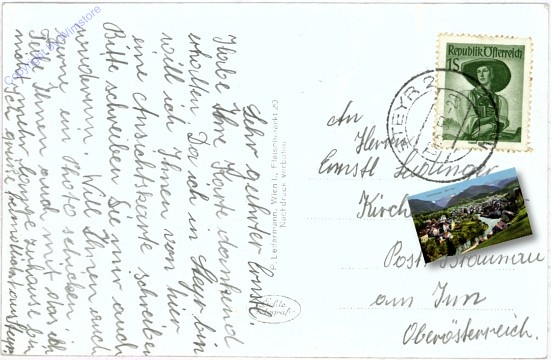 Sehr geehrter Ernstl.
Habe Ihre Karte dankend
erhalten. Da ich in Steyr bin
will ich Ihnen von hier
eine Ansichtskarte schreiben
Bitte schreiben Sie mir auch
Will Ihnen auch
gerne ein Photo schicken.
Teile Ihnen auch mit das ich
nicht mehr lange zuhause bin
aus Steyr
Ledermann, Wien I., Fleischmarkt 20
Nachdruck verboten
Echte
Republik Österreich
1S
STEYR 2
An
Herrn
Ernstl
Post Braunau
am Inn
Oberösterreich.
Copyright by Wimstore